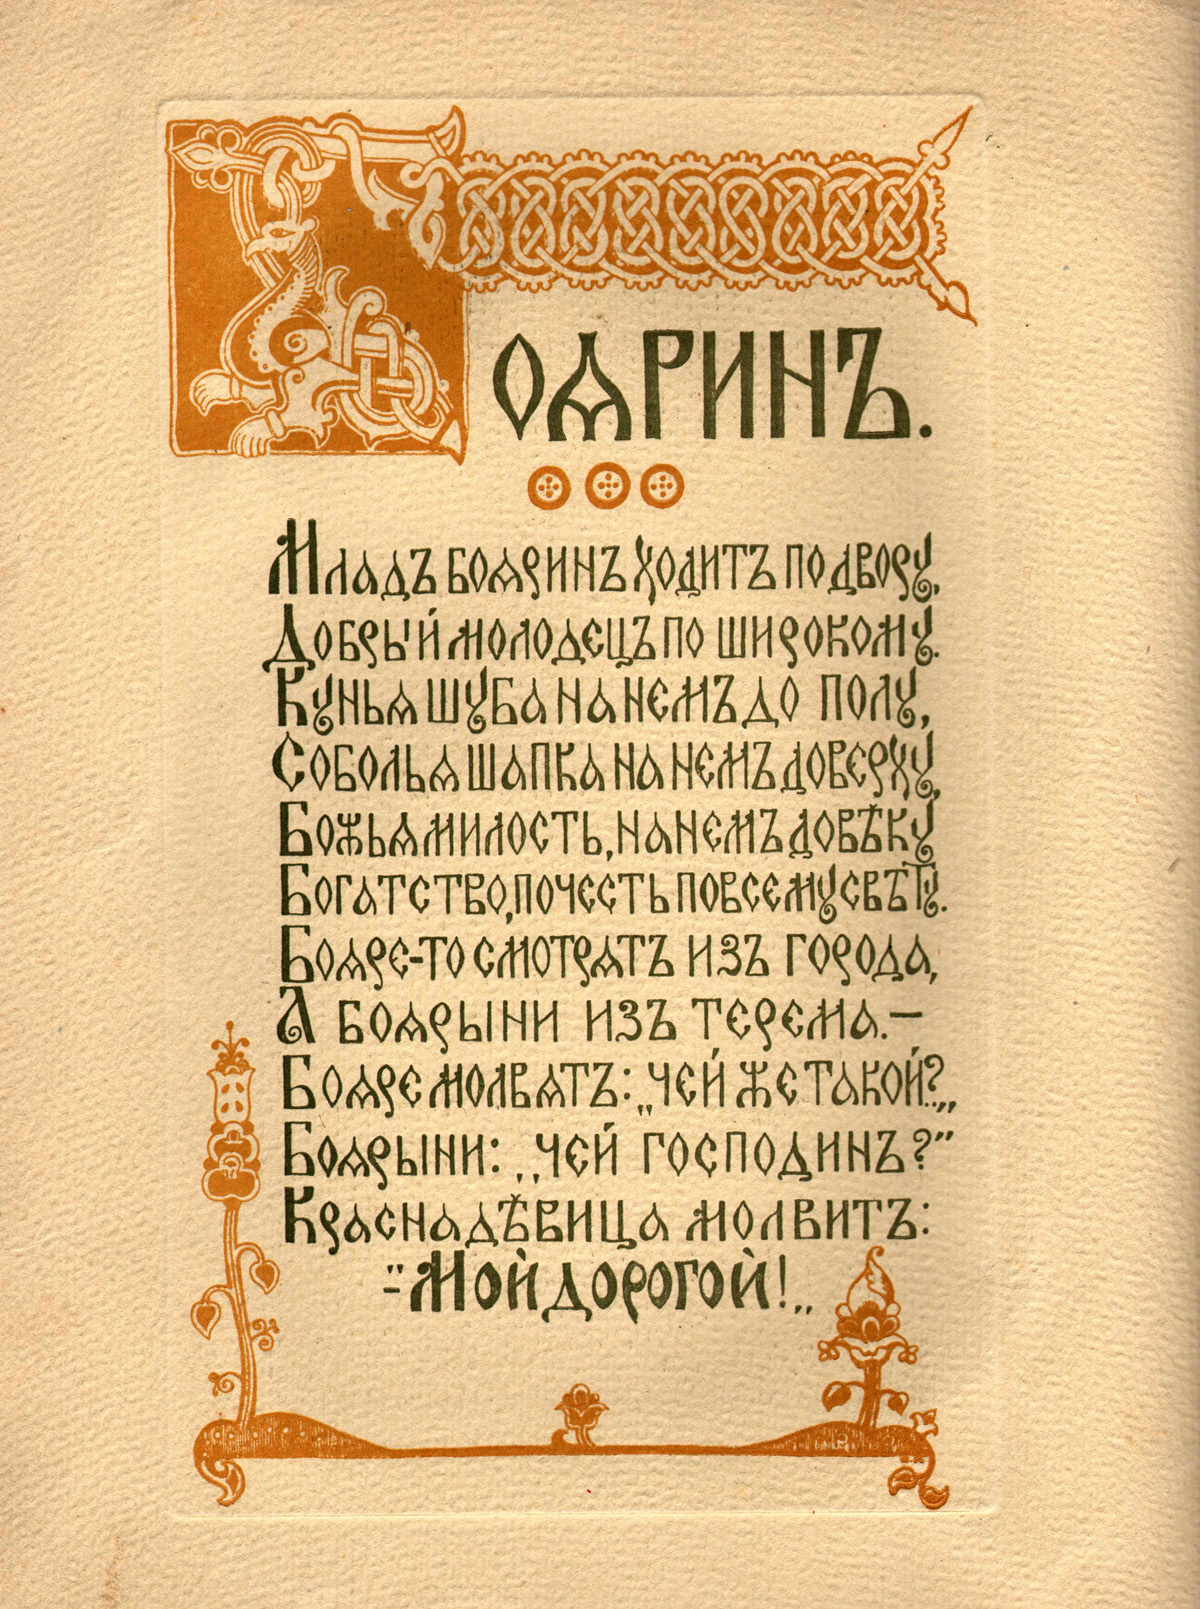 Боѧринъ.
Младъ боѧринъ ходитъ по двору,
Добрый молодецъ по широкому.
Куньѧ шуба на немъ до полу,
Соболья шапка на немъ доверху,
Божьѧ милость, на немъ довѣку
Богатство, почесть по всему свѣту.
Боѧре-то смотрѧтъ изъ города,
А боѧрыни изъ терема.—
Боѧре молвѧтъ: „чей же такой?„
Боѧрыни: „чей господинъ?"
Красна дѣвица молвитъ:
"Мой дорогой!„